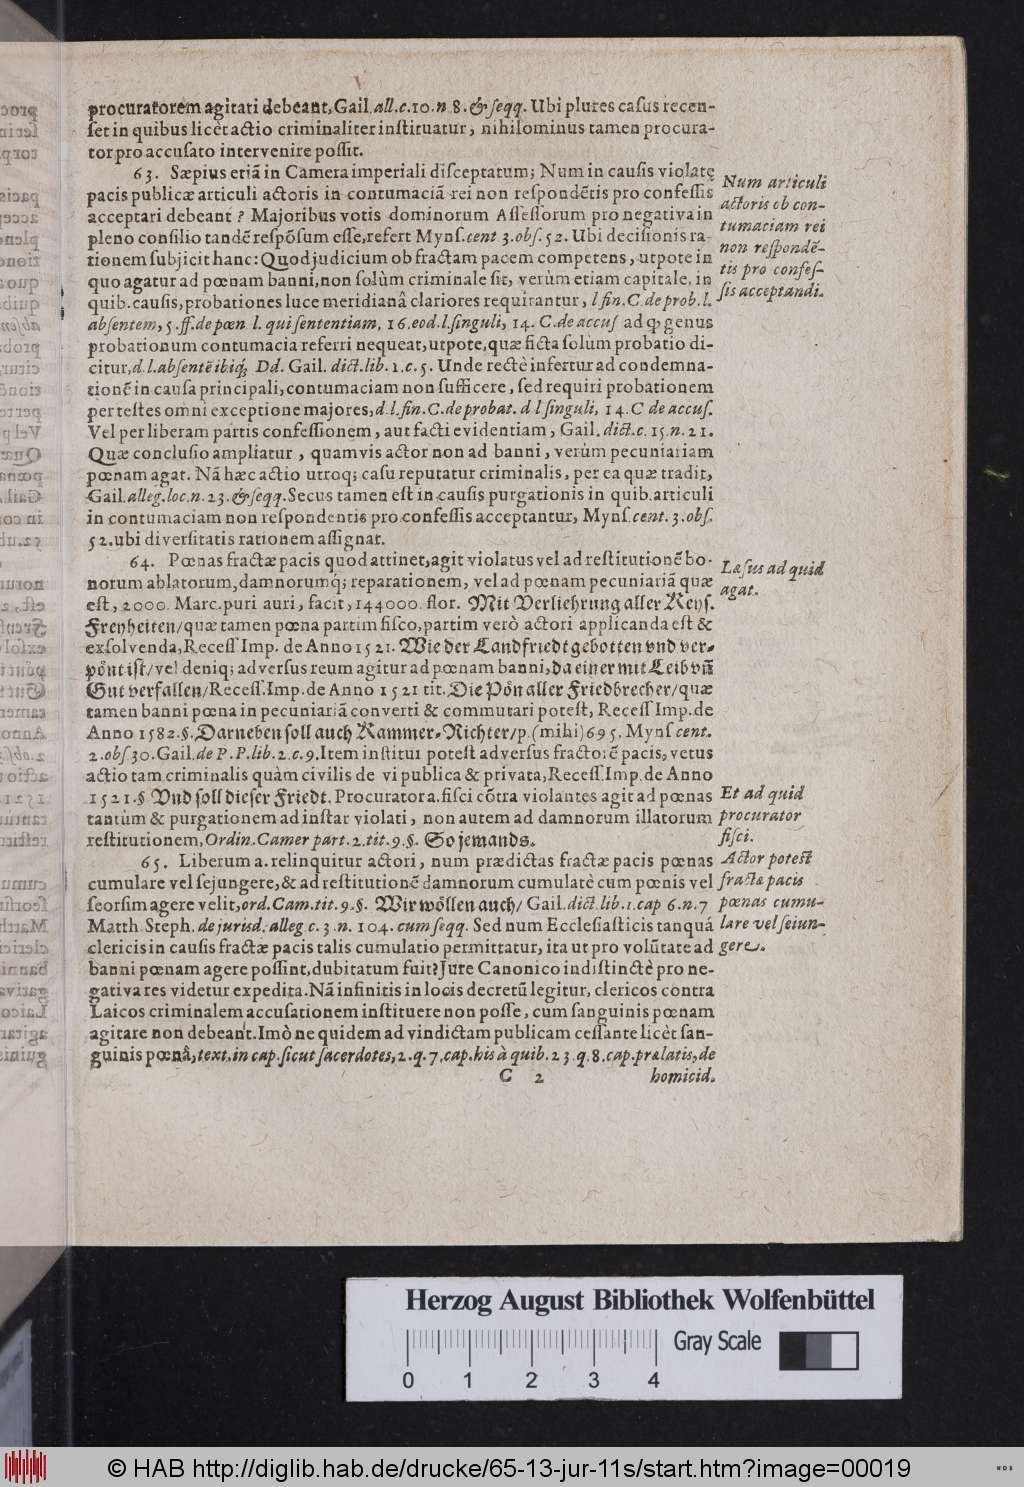 procuratorem agitati debeant, Gail. all. c. 10. n. 8. & seqq. Ubi plures casus recen-
set in quibus licèt actio criminaliter instituatur, nihilominus tamen procura-
tor pro accusato intervenire possit.
63. Sæpius etiã in Camera imperiali disceptatum; Num in causis violatę
pacis publicæ articuli actoris in contumaciã rei non respondẽtis pro confessis
acceptari debeant? Majoribus votis dominorum Assessorum pro negativa in
pleno consilio tandẽ respõsum esse, refert Myns. cent 3. obs. 52. Ubi decisionis ra-
tionem subjicit hanc: Quod judicium ob fractam pacem competens, utpote in
quo agatur ad pœnam banni, non solùm criminale sit, verùm etiam capitale, in
quib. causis, probationes luce meridianâ clariores requirantur, l fin. C. de prob. l.
absentem, 5. ff. de pœn l. qui sententiam, 16. eod. l. singuli, 14. C. de accus ad ꝙ genus
probationum contumacia referri nequeat, utpote, quæ ficta solùm probatio di-
citur, d. l. absentẽ ibiq; Dd. Gail. dict. lib. 1. c. 5. Unde rectè infertur ad condemna-
tionẽ in causa principali, contumaciam non sufficere, sed requiri probationem
per testes omni exceptione majores, d. l. fin. C. de probat. d l singuli, 14. C de accus.
Vel per liberam partis confessionem, aut facti evidentiam, Gail. dict. c. 15. n. 21.
Quæ conclusio ampliatur, quamvis actor non ad banni, verùm pecuniariam
pœnam agat. Nã hæc actio utroq; casu reputatur criminalis, per ea quæ tradit,
Gail. alleg. loc. n. 23. & seqq. Secus tamen est in causis purgationis in quib. articuli
in contumaciam non respondentis pro confessis acceptantur, Myns. cent. 3. obs.
52. ubi diversitatis rationem assignat.
64. Pœnas fractæ pacis quod attinet, agit violatus vel ad restitutionẽ bo-
norum ablatorum, damnorumq; reparationem, vel ad pœnam pecuniariã quæ
est, 2000. Marc. puri auri, facit, 144000. flor. Mit Verliehrung aller Keys.
Freyheiten/ quæ tamen pœna partim fisco, partim verò actori applicanda est &
exsolvenda, Recess. Imp. de Anno 1521. Wie der Landfriedt gebotten vnd ver-
pönt ist/ vel deniq; adversus reum agitur ad pœnam banni, da einer mit Leib vñ
Gut verfallen/ Recess. Imp. de Anno 1521 tit. Die Pön aller Friedbrecher/ quæ
tamen banni pœna in pecuniariã converti & commutari potest, Recess. Imp. de
Anno 1582. §. Darneben soll auch Kammer-Richter/ p. (mihi) 695. Myns cent.
2. obs 30. Gail. de P. P. lib. 2. c. 9. Item institui potest adversus fractorẽ pacis, vetus
actio tam criminalis quàm civilis de vi publica & privata, Recess. Imp. de Anno
1521. § Vnd soll dieser Friedt. Procurator a. fisci cõtra violantes agit ad pœnas
tantùm & purgationem ad instar violati, non autem ad damnorum illatorum
restitutionem, Ordin. Camer part. 2. tit. 9. §. So jemands.
65. Liberum a. relinquitur actori, num prædictas fractæ pacis pœnas
cumulare vel sejungere, & ad restitutionẽ damnorum cumulatè cum pœnis vel
seorsim agere velit, ord. Cam. tit. 9. §. Wir wöllen auch/ Gail. dict. lib. 1. cap 6. n. 7
Matth. Steph. de jurisd. alleg c. 3. n. 104. cum seqq. Sed num Ecclesiasticis tanquá
clericis in causis fractæ pacis talis cumulatio permittatur, ita ut pro volũtate ad
banni pœnam agere possint, dubitatum fuit? Jure Canonico indistinctè pro ne-
gativa res videtur expedita. Nã infinitis in locis decretũ legitur, clericos contra
Laicos criminalem accusationem instituere non posse, cum sanguinis pœnam
agitare non debeant. Imò ne quidem ad vindictam publicam cessante licèt san-
guinis pœnâ, text. in cap. sicut sacerdotes, 2. q. 7. cap. his à quib. 23. q. 8. cap. prælatis, de
C 2 homicid.
Num articuli
actoris ob con-
tumaciam rei
non respondẽ-
tis pro confes-
sis acceptandi.
Læsus ad quid
agat.
Et ad quid
procurator
fisci.
Actor potest
fractæ pacis
pœnas cumu-
lare vel sejun-
gere.
Herzog August Bibliothek Wolfenbüttel
Gray Scale
0 1 2 3 4
© HAB http://diglib.hab.de/drucke/65-13-jur-11s/start.htm?image=00019